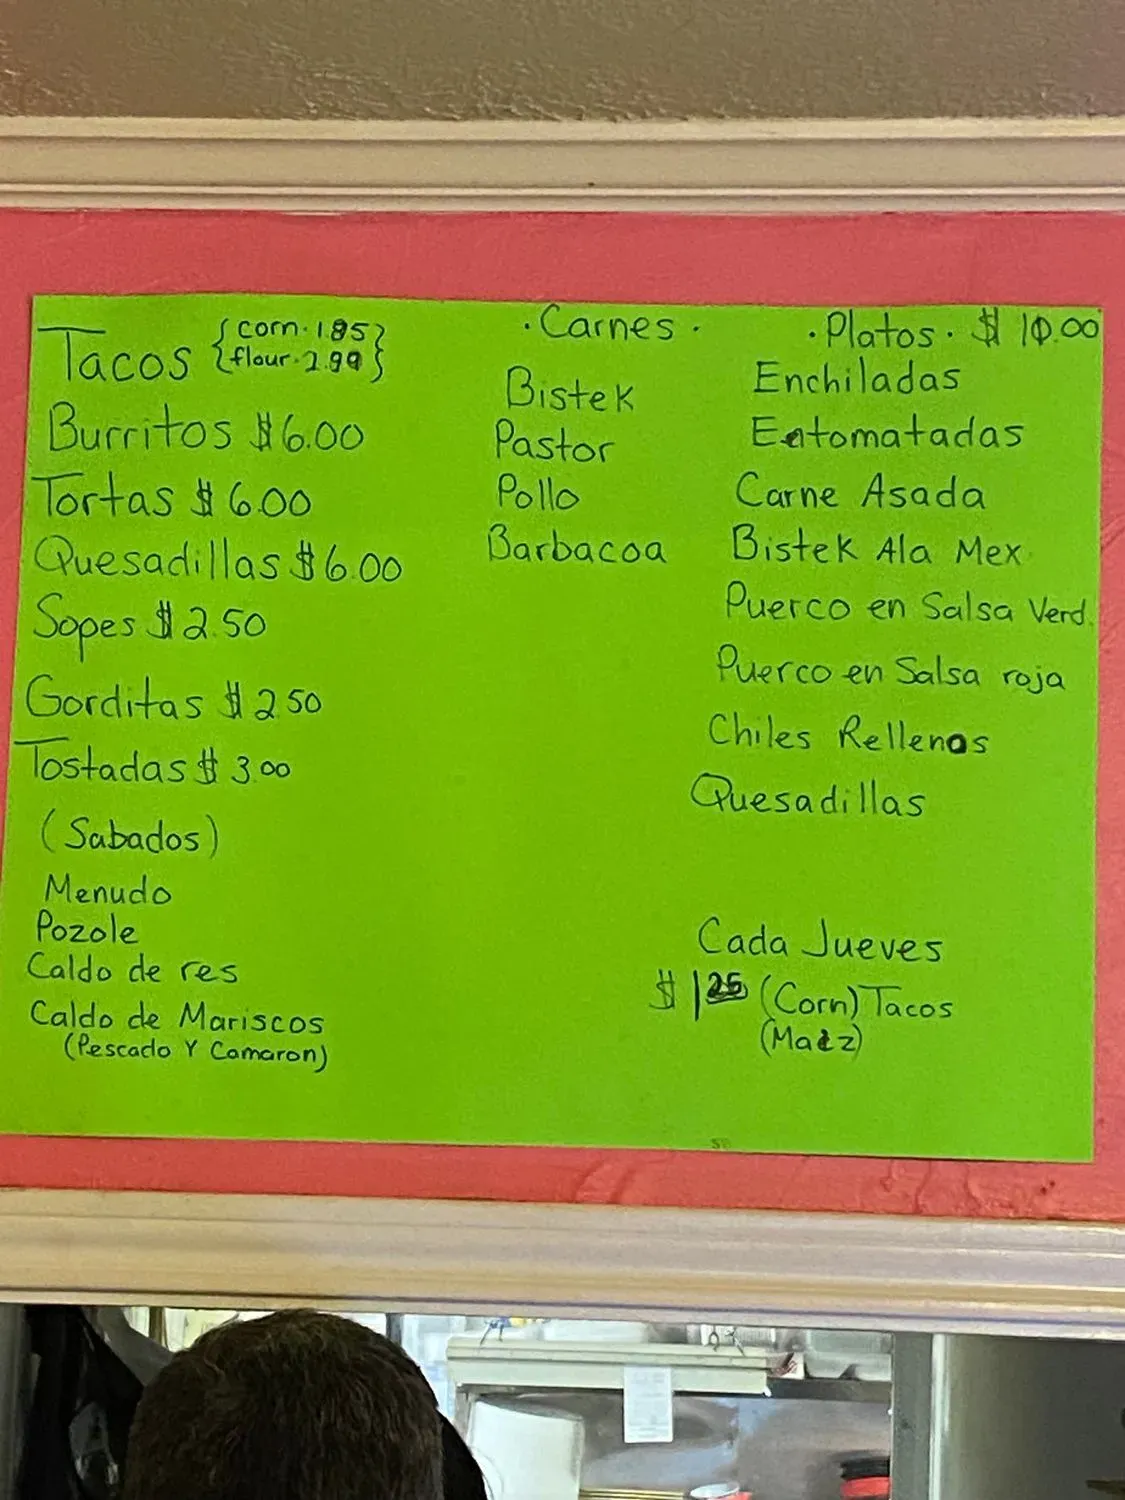 Tacos {corn·1.85} {flour·2.99}
Burritos $6.00
Tortas $6.00
Quesadillas $6.00
Sopes $2.50
Gorditas $2.50
Tostadas $3.00
(Sabados)
Menudo
Pozole
Caldo de res
Caldo de Mariscos
(Pescado Y Camaron)
·Carnes·
Bistek
Pastor
Pollo
Barbacoa
·Platos· $10.00
Enchiladas
Entomatadas
Carne Asada
Bistek Ala Mex
Puerco en Salsa Verd.
Puerco en Salsa roja
Chiles Rellenos
Quesadillas
Cada Jueves
$1 25 (Corn) Tacos
(Maiz)